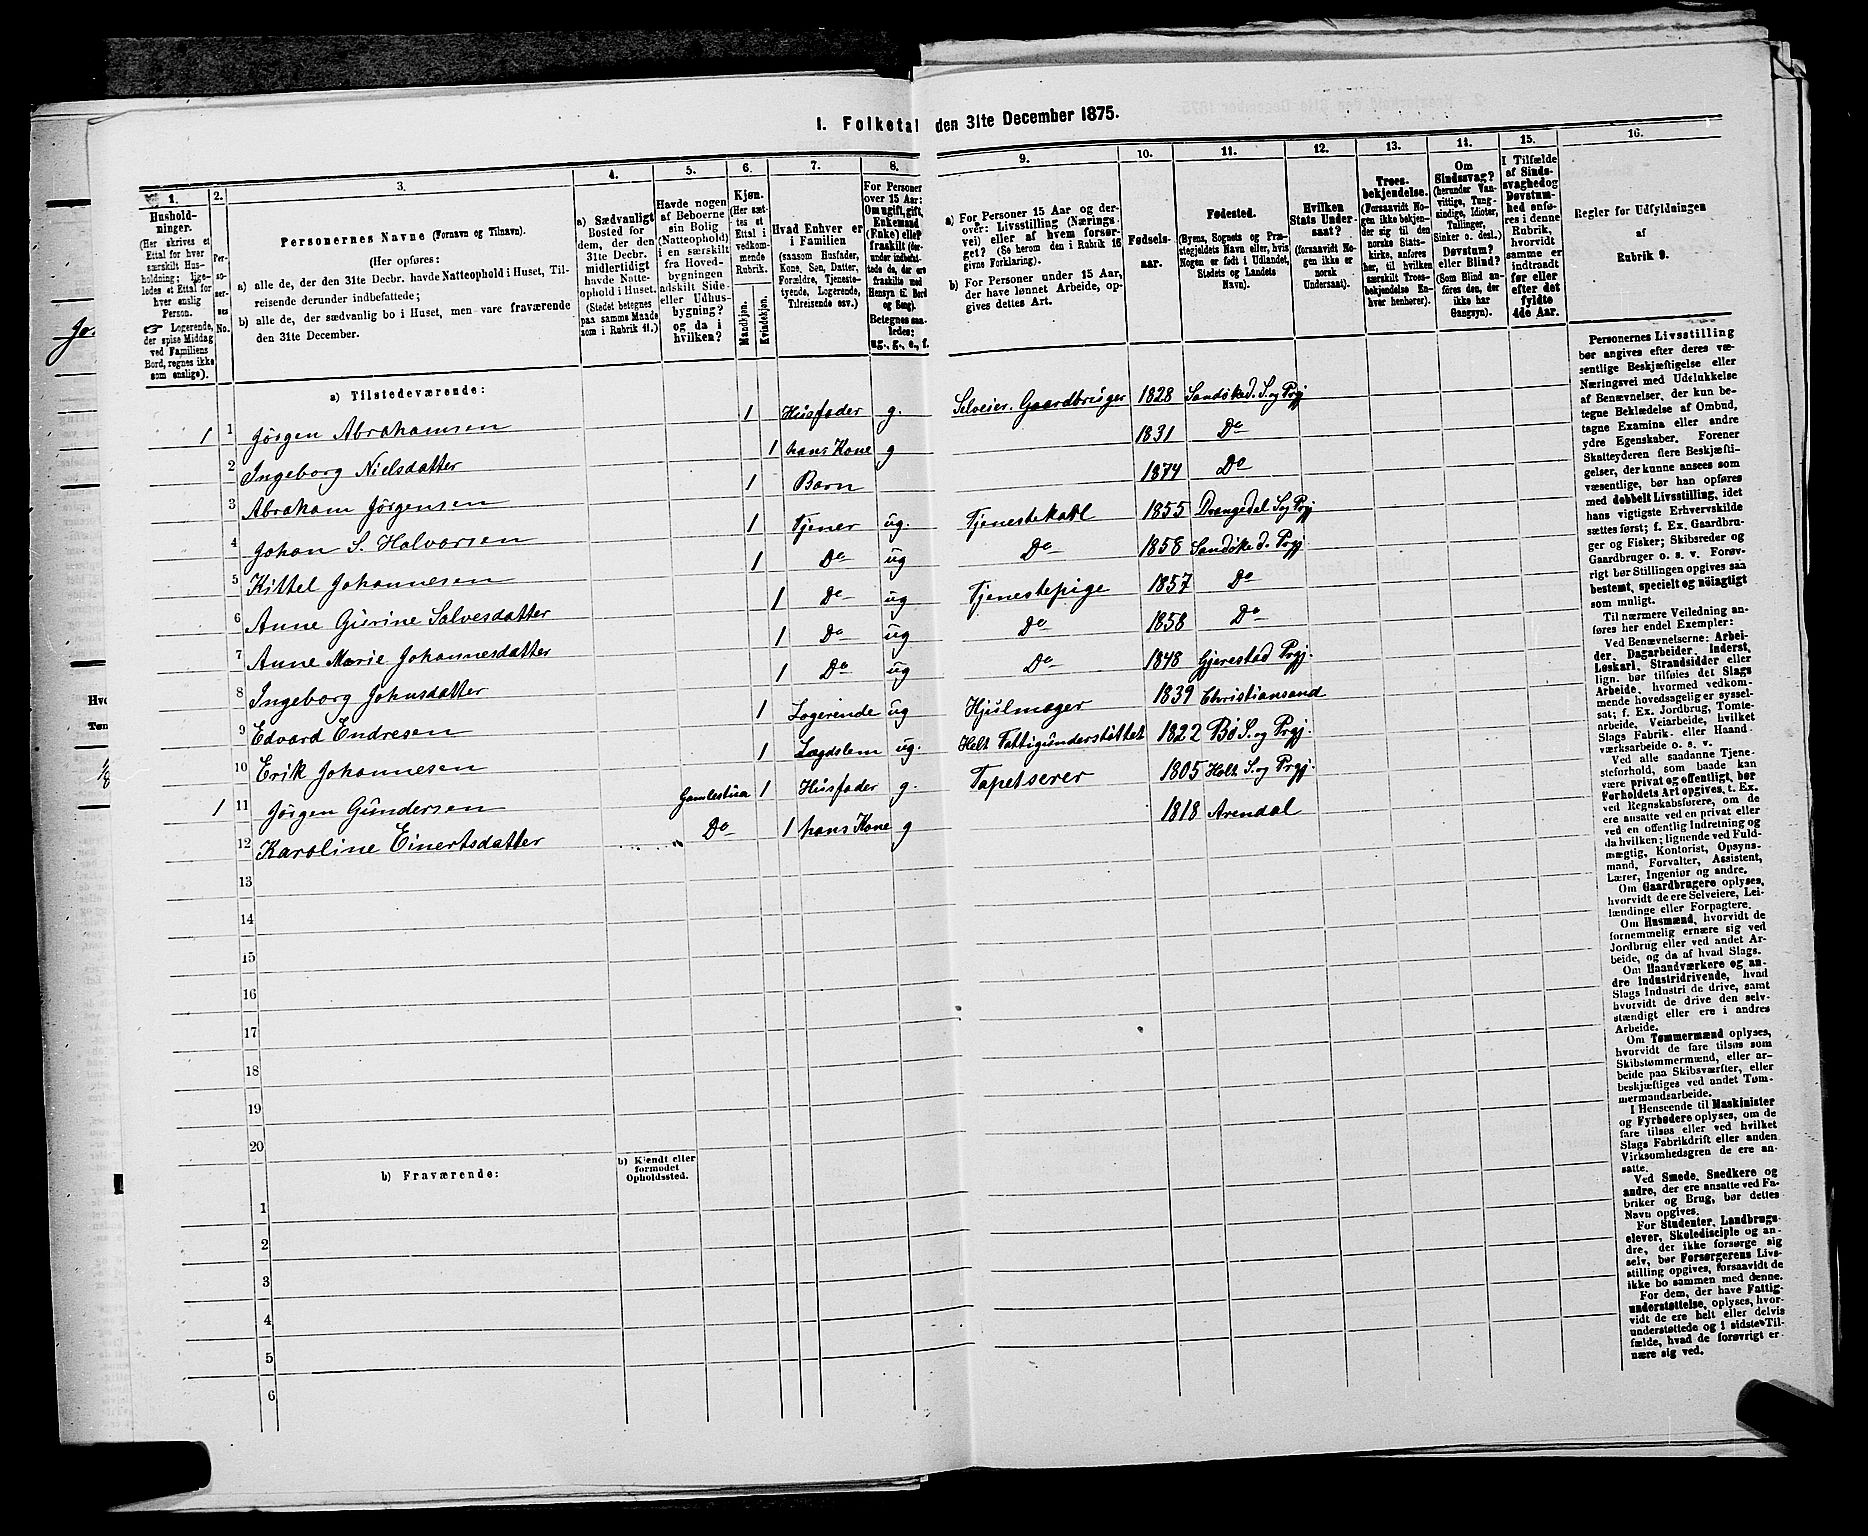 I. Folketal den 31te December 1875.
1. 2. 3. 4. 5. 6. 7. 8. 9. 10. 11. 12. 13. 14. 15. 16.
Hushold-
ninger.
(Her skrives et
Ettal for hver
særskilt Hus-
holdning; lige-
ledes et Ettal for
hver enslig
Person.
☞ Logerende,
der spise Middag
ved Familiens
Bord, regnes ikke
som enslige).
Per-
so-
ner-
nes
No.
Personernes Navne (Fornavn og Tilnavn).
(Her opføres:
a) alle de, der den 31te Decbr. havde Natteophold i Huset, Til-
reisende derunder indbefattede;
b) alle de, der sædvanlig bo i Huset, men vare fraværende
den 31te December.
a) Sædvanligt
Bosted for
dem, der den
31te Decbr.
midlertidigt
havde Natte-
ophold i Huset.
(Stedet betegnes
paa samme Maade
som i Rubrik 11.)
Havde nogen
af Beboerne
sin Bolig
(Natteophold)
i en særskilt
fra Hoved-
bygningen
adskilt Side-
eller Udhus-
bygning?
og da i
hvilken?
Kjøn.
(Her sæt-
tes et
Ettal i
vedkom-
mende
Rubrik.
Mandkjøn.
Kvindekjøn.
Hvad Enhver er
i Familien
(saasom Husfader,
Kone, Søn, Datter,
Forældre, Tjeneste-
tyende, Logerende,
Tilreisende osv.)
For Personer
over 15 Aar:
Om ugift, gift,
Enkemand
(Enke) eller
fraskilt (der-
under indbefat-
tede de, der ere
fraskilte med
Hensyn til Bord
og Seng).
Betegnes saa-
ledes:
ug., g., e., f.
a) For Personer 15 Aar og der-
over: Livsstilling (Nærings-
vei) eller af hvem forsør-
get? (Se herom den i Rubrik 16
givne Forklaring).
b) For Personer under 15 Aar,
der have lønnet Arbeide, op-
gives dettes Art.
Fødsels-
aar.
Fødested.
(Byens, Sognets og Præ-
stegjeldets Navn eller, hvis
Nogen er født i Udlandet,
Stedets og Landets
Navn).
Hvilken
Stats Under-
saat?
(forsaavidt No-
gen ikke er
norsk
Undersaat).
Troes-
bekjendelse.
(Forsaavidt No-
gen ikke bekjen-
der sig til den
norske Stats-
kirke, anføres
her, til hvilken
særskilt Troes-
bekjendelse En-
hver henhører).
Om
Sindssvag?
(herunder Van-
vittige, Tung-
sindige, Idioter,
Tullinger,
Sinker o. desl.)
Døvstum?
eller Blind?
(Som Blind an-
føres den, der
ikke har
Gangsyn).
I Tilfælde
af Sinds-
svaghed og
Døvstum-
hed anfø-
res i denne
Rubrik,
hvorvidt
samme er
indtraadt
før eller
efter det
fyldte
4de Aar.
Regler for Udfyldningen
af
Rubrik 9.
a) Tilstedeværende:
1 1 Jörgen Abrahamsen 1 Husfader g. Selveier. Gaardbruger 1828 Sandöked. S. og Prgj
2 Ingeborg Nielsdatter 1 hans Kone g 1831 Do
3 Abraham Jörgensen 1 Barn 1874 Do
4 Johan S. Halvorsen 1 Tjener ug. Tjenestekarl 1855 Drangedal S og Prgj
5 Kittel Johannesen 1 Do ug Do 1858 Sandöked. Prgj
6 Anne Gurine Salvesdatter 1 Do ug Tjenestepige 1857 Do
7 Anne Marie Johannesdatter 1 Do ug Do 1858 Do
8 Ingeborg Johnsdatter 1 Do ug Do 1848 Gjerestad Prgj.
9 Edvard Endresen 1 Logerende ug Hjulmager 1839 Christiansand
10 Erik Johannesen 1 Lægdslem ug. Helt Fattigunderstöttet 1822 Bö S. og Prgj.
1 11 Jörgen Gundersen Gamlestua 1 Husfader g. Tapetserer 1805 Holt S. og Prgj.
12 Karoline Einertsdatter Do 1 hans Kone g 1818 Arendal
13
14
15
16
17
18
19
20
b) Fraværende:
b) Kjendt eller
formodet
Opholdssted.
1
2
3
4
5
6
Personernes Livsstilling
bør angives efter deres væ-
sentlige Beskjæftigelse eller
Næringsvei med Udelukkelse
af Benævnelser, der kun be-
tegne Beklædelse af Ombud,
tagne Examina eller andre
ydre Egenskaber. Forener
Skatteyderen flere Beskjæfti-
gelser, der kunne ansees som
væsentlige, bør han opføres
med dobbelt Livsstilling, idet
hans vigtigste Erhvervskilde
sættes først; f. Ex. Gaardbru-
ger og Fisker; Skibsreder og
Gaardbruger o. s. v. Forøv-
rigt bør Stillingen opgives saa
bestemt, specielt og nøiagtigt
som muligt.
Til nærmere Veiledning an-
føres her endel Exempler:
Ved Benævnelserne: Arbei-
der, Dagarbeider, Inderst,
Løskarl, Strandsidder eller
lign. bør tilføies det Slags
Arbeide, hvormed vedkom-
mende hovedsagelig er syssel-
sat; f. Ex. Jordbrug, Tomte-
arbeide, Veiarbeide, hvilket
Slags Fabrik- eller Haand-
værksarbeide o. s. v.
Ved alle saadanne Tjene-
steforhold, som baade kan
være privat og offentligt, bør
Forholdets Art opgives, t. Ex.
ved Regnskabsførere, om de
ere ansatte ved en privat eller
ved en offentlig Indretning og
da hvilken; lignende ved Fuld-
mægtig, Kontorist, Opsyns-
mand, Forvalter, Assistent,
Lærer, Ingeniør og andre.
Om Gaardbrugere oplyses,
hvorvidt de ere Selveiere, Lei-
lændinge eller Forpagtere.
Om Husmænd, hvorvidt de
fornemmelig ernære sig ved
Jordbrug eller ved andet Ar-
beide, og da af hvad Slags.
Om Haandværkere og an-
dre Industridrivende, hvad
Slags Industri de drive, samt
hvorvidt de drive den selv-
stændigt eller ere i andres
Arbeide.
Om Tømmermænd oplyses,
hvorvidt de fare tilsøs som
Skibstømmermænd, eller ar-
beide paa Skibsværfter, eller
beskjæftiges ved andet Tøm-
mermandsarbeide.
I Henseende til Maskinister
og Fyrbødere oplyses, om de
fare tilsøs eller ved hvilket
Slags Fabrikdrift eller anden
Virksomhedsgren de ere an-
satte.
Ved Smede, Snedkere og
andre, der ere ansatte ved Fa-
briker og Brug, bør dettes
Navn opgives.
For Studenter, Landbrugs-
elever, Skoledisciple og an-
dre, der ikke forsørge sig
selv, bør Forsørgerens Livs-
stilling opgives, forsaavidt de
ikke bo sammen med denne.
For dem, der have Fattig-
understøttelse, oplyses, hvor-
vidt de ere helt eller delvis
understøttede og i sidste Til-
fælde, hvad de forøvrigt er-
nære sig ved.